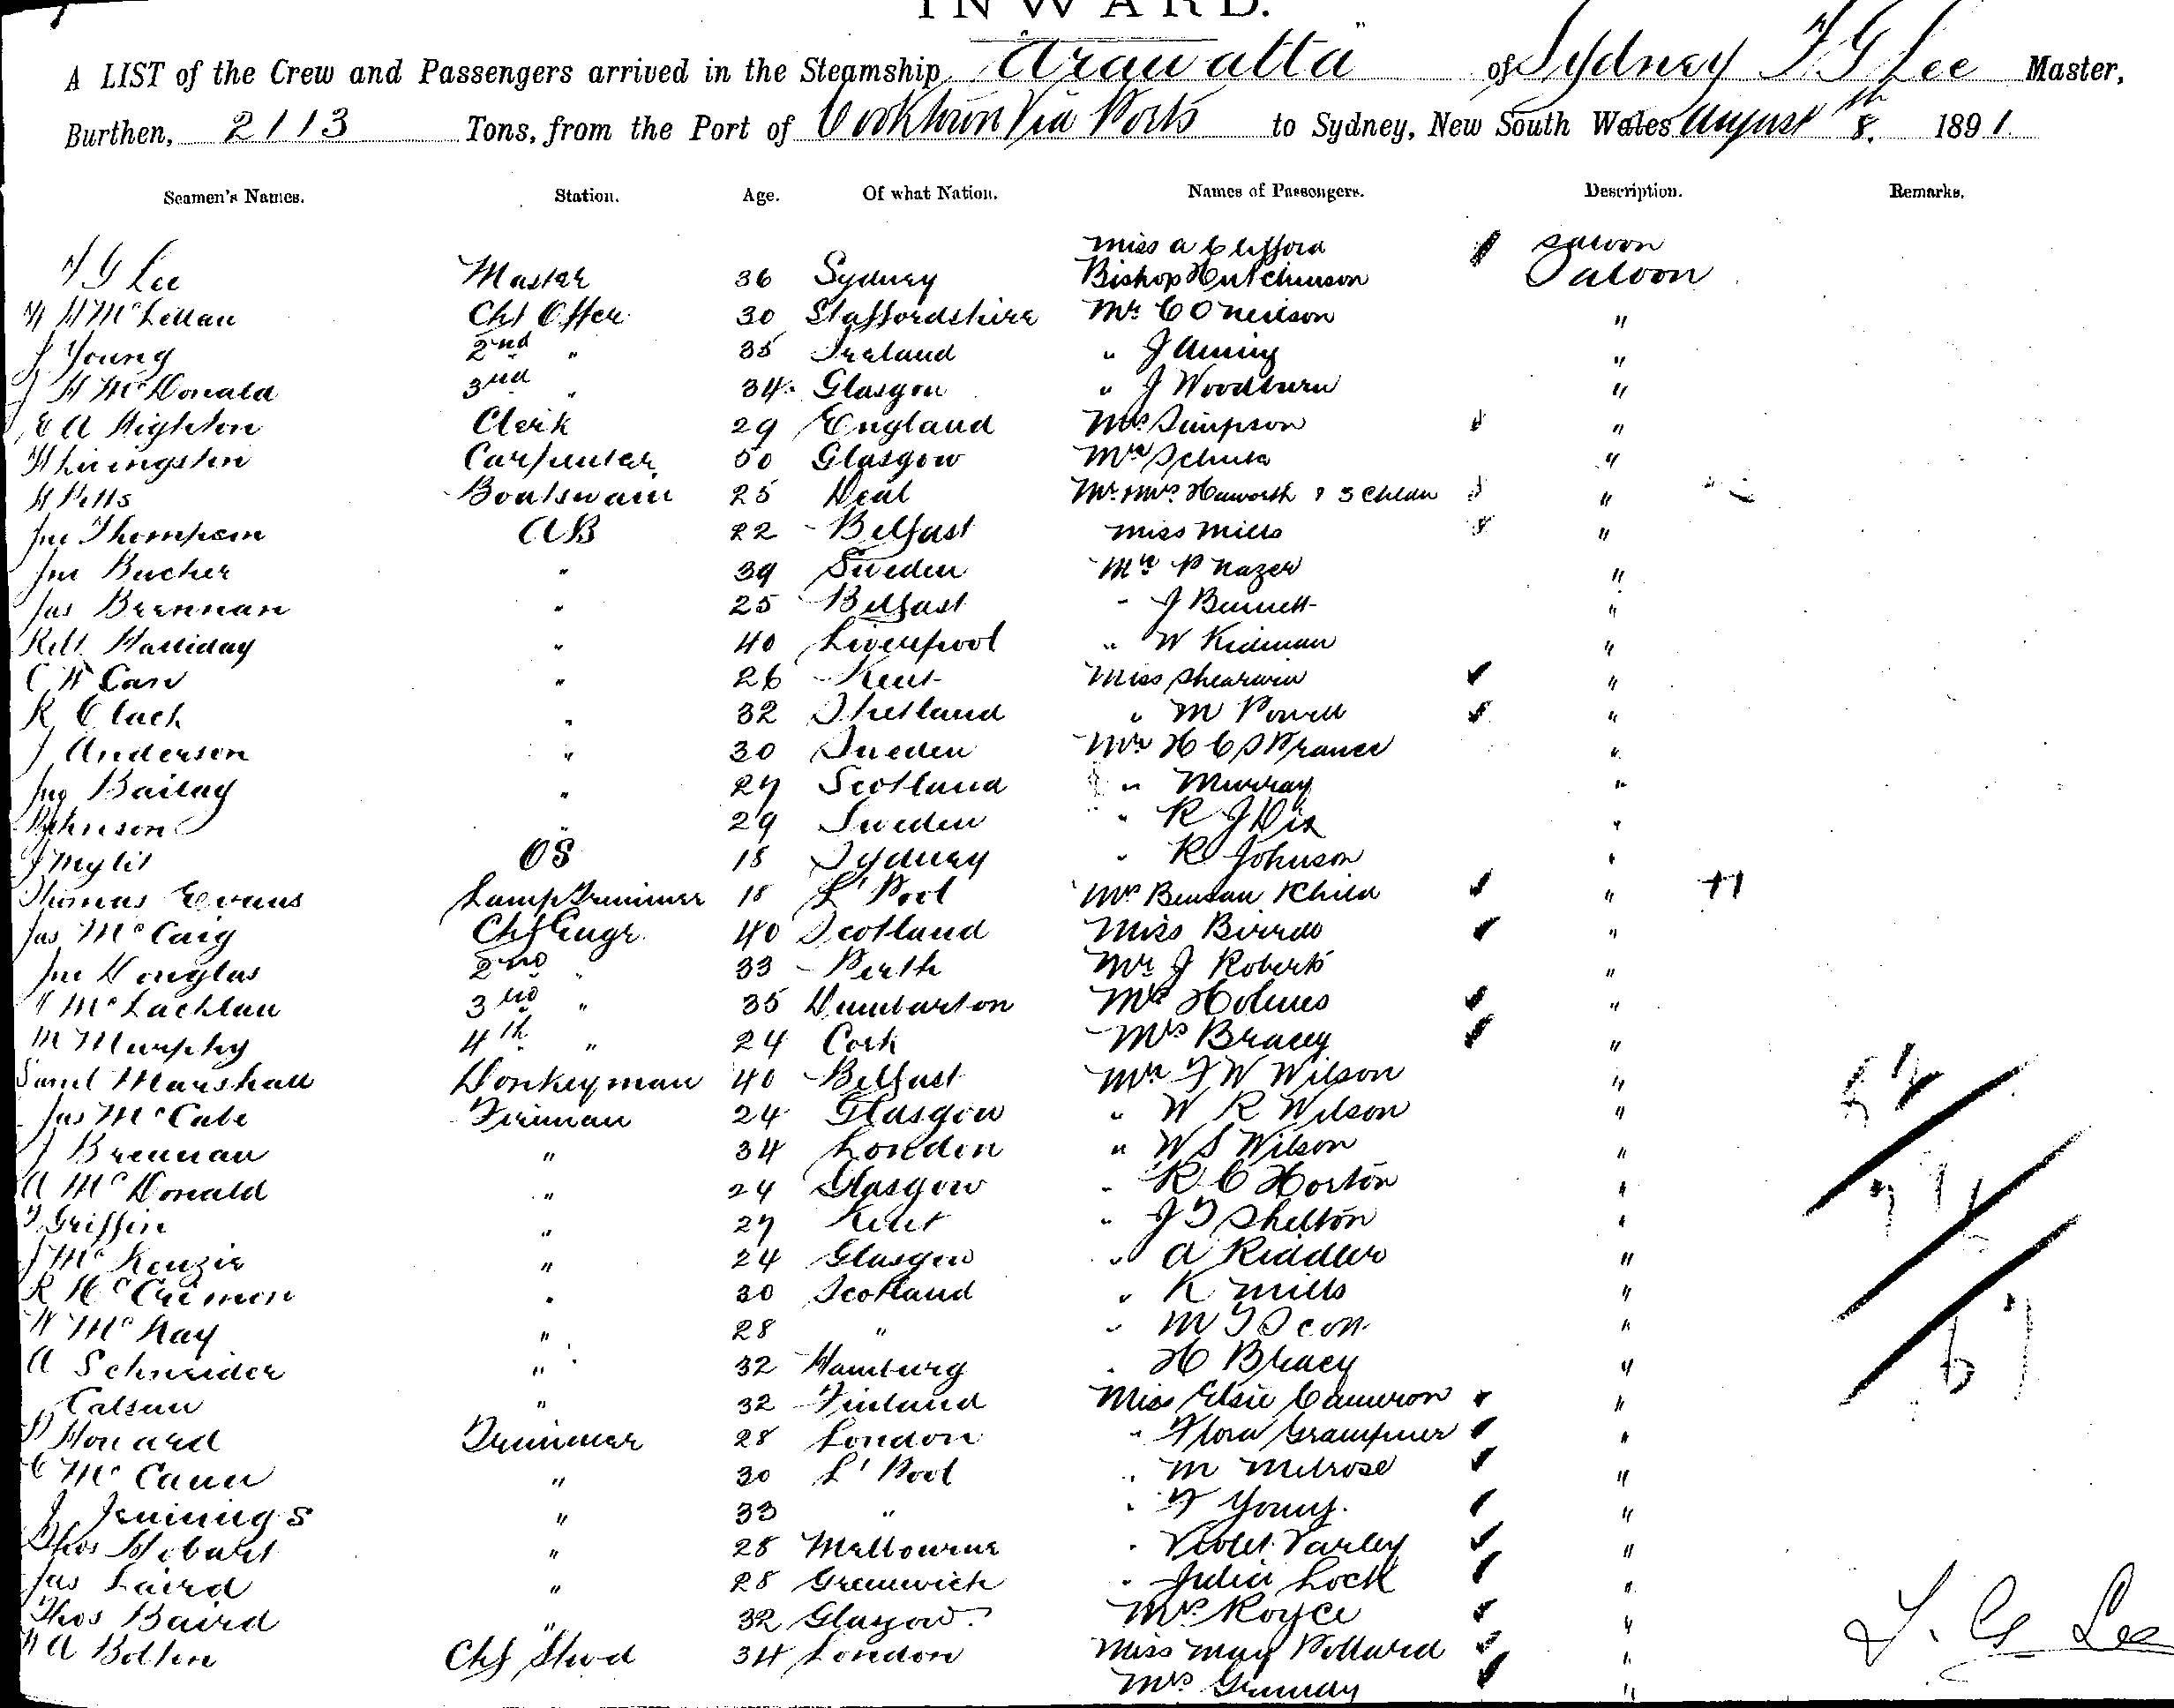 INWARD.
A LIST of the Crew and Passengers arrived in the Steamship Arawatta of Sydney F G Lee Master,
Burthen, 2113 Tons, from the Port of Cooktown Via Ports to Sydney, New South Wales August 8th 1891.
Seamen's Names. Station. Age. Of what Nation. Names of Passengers. Description. Remarks.
Miss A Clifford Saloon
F G Lee Master 36 Sydney Bishop Hutchinson Saloon
McLellan Chf Offcer 30 Staffordshire Mr C O Neilson "
J Young 2nd " 35 Ireland " J "
J H McDonald 3rd " 34 Glasgow " J Woodburn "
E A Highton Clerk 29 England Mrs Simpson "
H Livingston Carpenter 50 Glasgow Mr "
H Petts Boatswain 25 Deal Mr Mrs Haworth & 3 Childn "
Jno Thompson AB 22 Belfast Miss Mills "
Jno Bucher " 39 Sweden Mr P Nazer "
Jas Brennan " 25 Belfast " J Bennett "
Robt Halliday " 40 Liverpool " W Kidman "
C W Carr " 26 Kent Miss Shearwin "
R Clach " 32 Shetland " M Powell "
J Anderson " 30 Sweden Mr H C S "
Jno Bailey " 27 Scotland " Murray "
Johnson " 29 Sweden " R J Dix "
J OS 18 Sydney " R Johnson "
Thomas Evans Lamp Trimmer 18 L'Pool Mrs Benson & Child "
Jas McCaig Chf Engr. 40 Scotland Miss "
Jno Douglas 2nd " 33 Perth Mr J Roberts "
McLachlan 3rd " 35 Dumbarton Mrs Holmes "
M Murphy 4th " 24 Cork Mrs Bracey "
Saml Marshall Donkeyman 40 Belfast Mr F W Wilson "
Jas McCabe Fireman 24 Glasgow " W R Wilson "
J Brennan " 34 London " W S Wilson "
A McDonald " 24 Glasgow " R C Horton "
T Griffin " 27 Kent " J T Shelton "
J McKenzie " 24 Glasgow " A Riddler "
R McCrimon " 30 Scotland " K Mills "
W McKay " 28 " " M T Scott "
A Schneider " 32 Hamburg " H Bracy "
" 32 Finland Miss Elsie Cameron "
Howard Trimmer 28 London " Flora "
C McCann " 30 L'Pool " M Melrose "
J Jennings " 33 " " F Young "
Thos Hobart " 28 Melbourne " Violet Varley "
Jas Laird " 28 Greenwich " Julia Lock "
Thos Baird " 32 Glasgow Mrs Royce "
A Bolten Chf Stwd 34 London Miss May Pollard "
Mrs "
F. G Lee